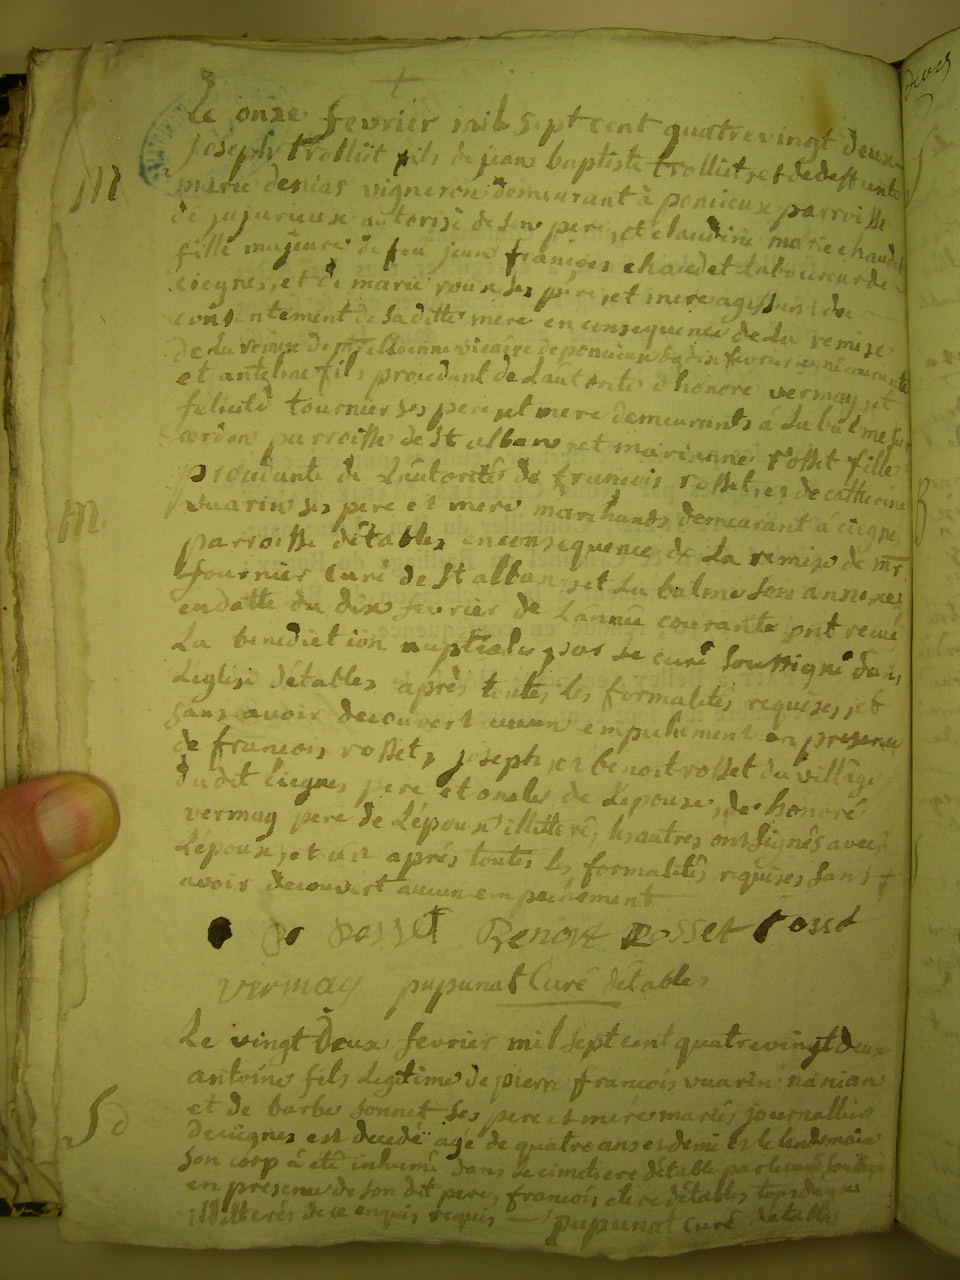 Le onze fevrier mil sept cent quatre vingt deux
joseph trolliet fils de jean baptiste trolliet et de deffunte
M
marie denias vigneron demeurant à poncieux parroisse
de jujurieux autorisé de son pere, et claudine marie chaudet
fille majeure de feu jean françois chaudet laboureur de
ciegnes, et de marie roux ses pere et mere agissant du
consentement de sa ditte mere en consequence de la remise
de la remise de vicaire de poncieux du dix fevrier année courante
et antelme fils procedant de l'autorité d'honoré vermay, et
felicité tournier ses pere et mere demeurants à la balme sur
cerdon parroisse de St alban, et marianne rosset fille
procedante de l'autorité de francois rosset, et de catherine
M
vuarin ses pere et mere marchands demeurant à ciegne
parroisse détables en consequence de la remise de mr
fournier curé de St alban, et la balme son annexe
en datte du dix fevrier de l'année courante ont reçu
La benediction nuptiale par le curé soussigné dans
L'eglise détables après toutes les formalités requises, et
sans avoir decouvert aucun empechement en presence
de francois rosset, joseph, et benoit rosset du village
du dit ciegnes pere et oncles de l'epouse, de honoré
vermay pere de L'époux illitteré, les autres ont signés avec
L'époux, et après toutes les formalités requises sans
avoir decouvert aucun empechement
rosset Benoit Rosset rosset
vermay pupunat Curé détables
Le vingt deux fevrier mil sept cent quatre vingt deux
antoine fils legitime de pierre francois vuarin nanian
et de barbe sonnet ses pere et mere mariés journallier
Sd
de ciegnes est decedé agé de quatre ans et demi et le lendemain
son corp à eté inhumé dans le cimetiere détable par le curé soussigné
en presence de son dit pere, francois détables tous deux
illitterés de ce enquis requis — pupunat curé détables